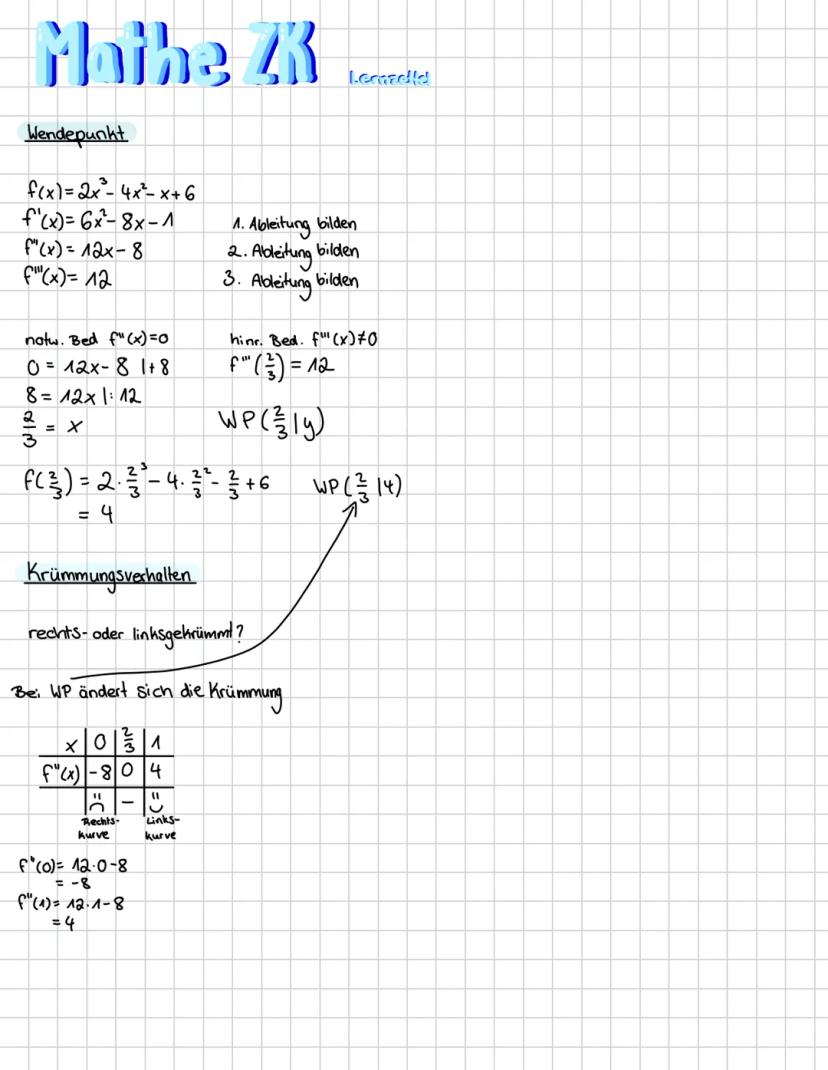 Mathe ZK Lernzettel
Wendepunkt
f(x)=2x³-4x²-x+6
f'(x)=6x²-8x-1 1. Ableitung bilden
f"(x)=12x-8 2. Ableitung bilden
f'''(x)=12 3. Ableitung bilden
notw. Bed f"(x)=0 hinr. Bed. f'''(x)≠0
0=12x-8 |+8 f'''(2/3)=12
8=12x |:12
2/3=x WP(2/3|y)
f(2/3)=2·2/3³-4·2/3²-2/3+6 WP(2/3|4)
=4
Krümmungsverhalten
rechts- oder linksgekrümmt?
Bei WP ändert sich die Krümmung
x | 0 | 2/3 | 1
f"(x) | -8 | 0 | 4
-
Rechts- Links-
kurve kurve
f"(0)=12·0-8
=-8
f"(1)=12·1-8
=4